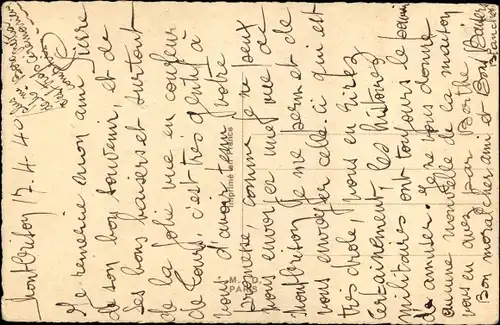 Montbrison 17.4.40
Je remercie mon ami Pierre
de son bon souvenir, et de
ses bons baisers et surtout
de la jolie vue en couleur
de Tours, c'est très gentil à
vous d'avoir tenu votre
promesse, comme je ne peux
vous envoyer une vue de
Montbrison je me permet de
vous envoyer celle-ci qui est
très drôle, vous en rirez
certainement, les histoires
militaires ont toujours le
d'amuser. Je ne vous donne
aucune nouvelle de la maison
vous en avez par Berthe
Bon moral cher ami et bons baisers
Imprimé en France
M. D.
PARIS